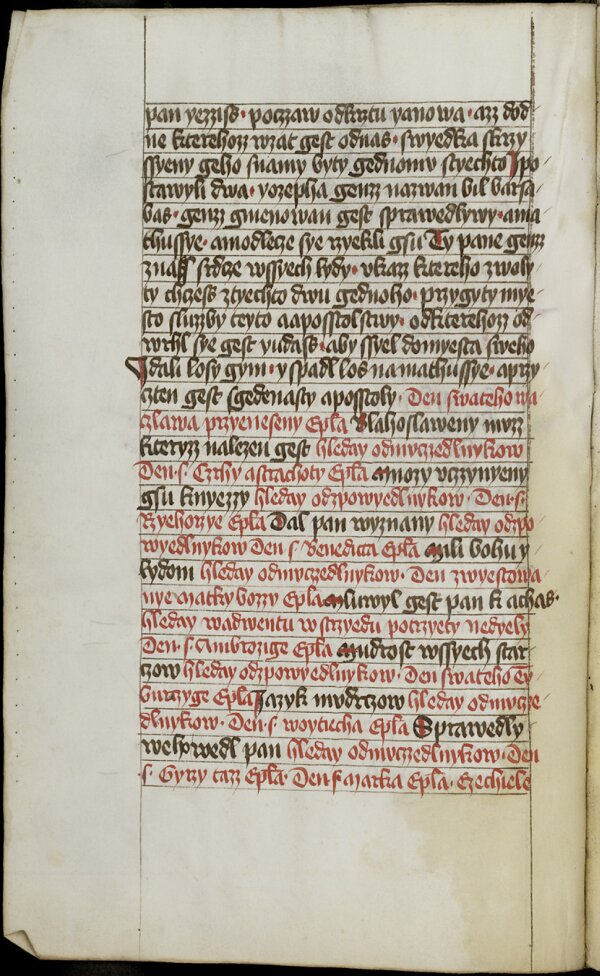 pan yezzis · poczaw odkrztu yanowa · azz dod
ne kterehozz wzat gest odnas · swyedka skrzy
ssyeny geho snamy byty gednomv styechto J po
stawyli dwa · yozepha genzz nazwan bil barsa
bas · genzz gmenowan gest sprawedlywy · ama
thussye · amodlecze sye rzyekli gsu Ty pane genzz
znass srdcze wssyech lydy · vkazz ktereho zwoly
ty chzess ztyechto dwu gednoho · przygyty mye
sto sluzby teyto aaposstolstwy · odkterehozz od
wrhl sye gest yudass · aby ssyel domyesta sweho
J dali losy gym · y spadl los na mathussye · aprzy
czten gest sgedenasty aposstoly · Den swateho wa
czlawa przyeneseny Epla Blahoslaweny muzz
kteryzz nalezen gest hleday odmuczedlnykow
Den · s · Crzhy astrachoty Epla Mnozy vczynyeny
gsu knyezzy hleday odzpowyedlnykow · Den · s ·
Rzyehorzye Epla Dal pan wyznany hleday odzpo
wyedlnykow Den s Benedicta Epla Mili bohu y
lydom hleday odmuczedlnykow · Den zwyestowa
nye matky bozzy Epla Mluwyl gest pan k achas ·
hleday wadwentu wstrzyedu potrzyety nedyely
Den · s · Ambrozige Epla Mudrost wssyech star
czow hleday odzpowyedlnykow · Den swateho Ty
burczyge Epla Jazyk mudrczow hleday odmucze
dlnykow · Den · s · woytiecha Epla Sprawedly
weho wedl pan hleday odmuczedlnykow · Den
s · Gyrzy tazz Epla · Den s marka Epla · Ezechiele